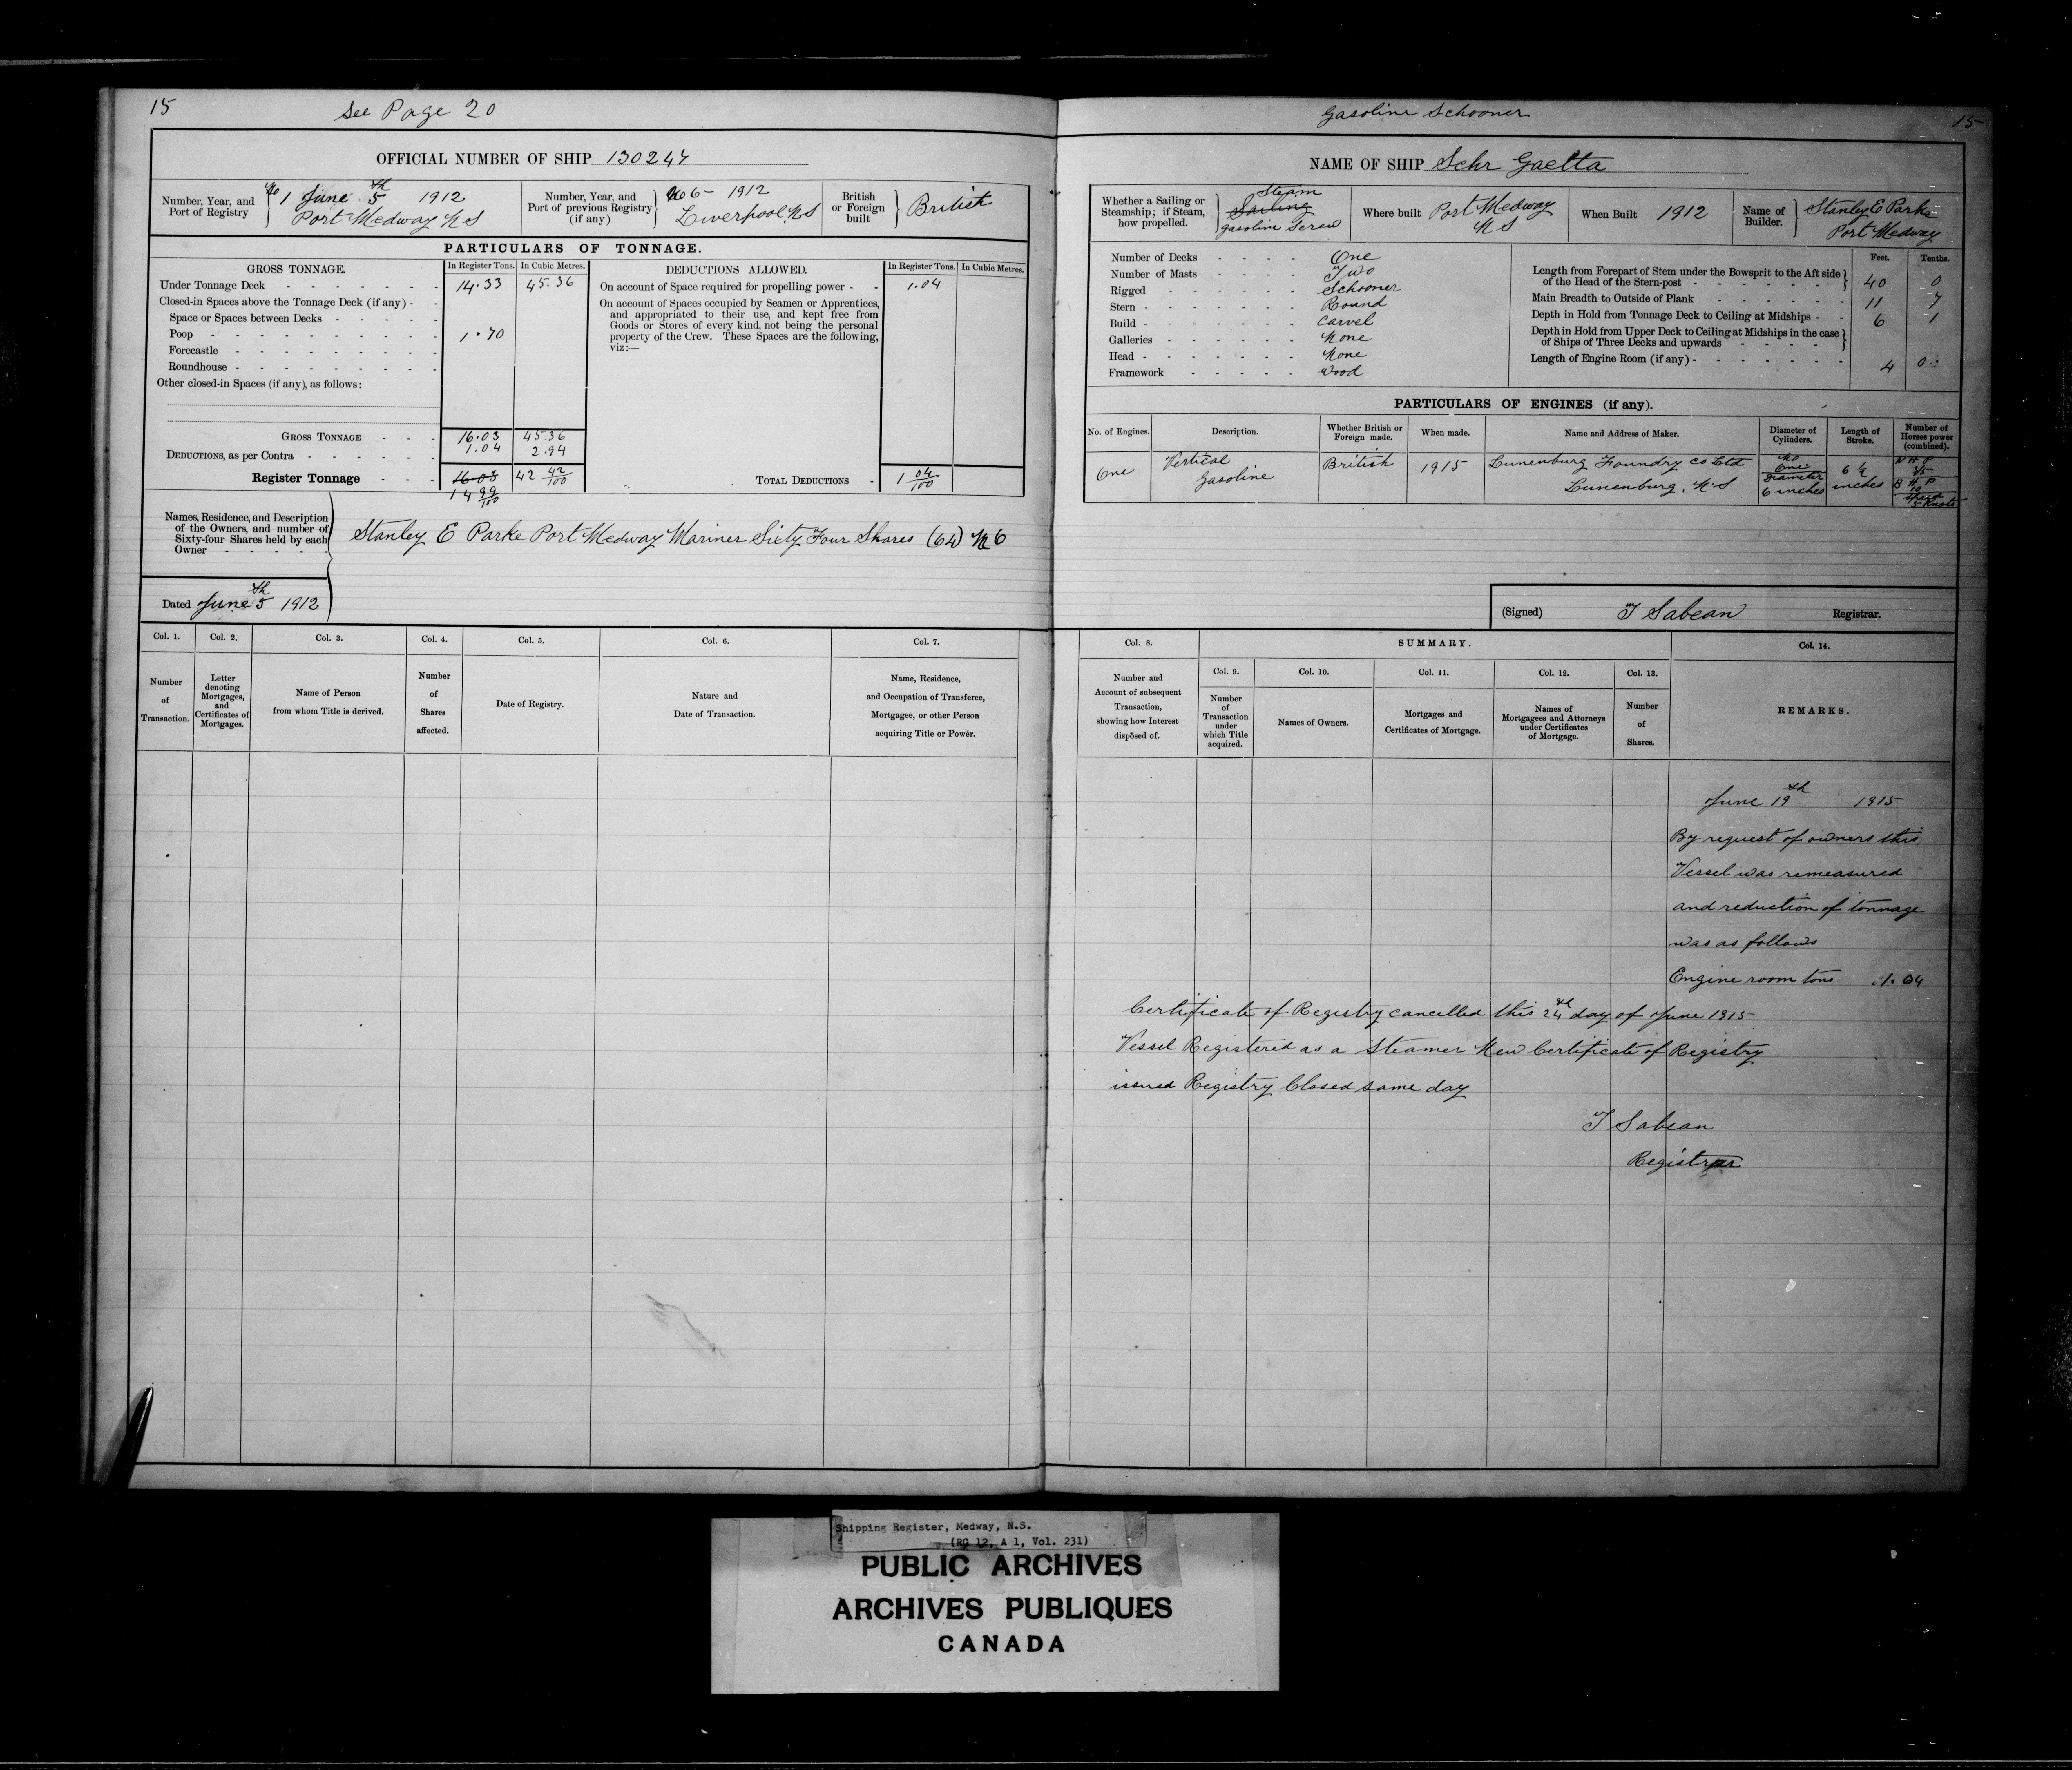 15 See Page 20
OFFICIAL NUMBER OF SHIP 130247
Number, Year, and Port of Registry
No 1 June 5th 1912
Port Medway N S
Number, Year, and Port of previous Registry (if any)
No 6 - 1912
Liverpool N S
British or Foreign built
British
PARTICULARS OF TONNAGE.
GROSS TONNAGE. In Register Tons. In Cubic Metres.
Under Tonnage Deck 14.33 45.36
Closed-in Spaces above the Tonnage Deck (if any)
Space or Spaces between Decks
Poop 1.70
Forecastle
Roundhouse
Other closed-in Spaces (if any), as follows:
GROSS TONNAGE 16.03 45.36
DEDUCTIONS, as per Contra 1.04 2.94
Register Tonnage 16.03 42 42/100
14 99/100
DEDUCTIONS ALLOWED. In Register Tons. In Cubic Metres.
On account of Space required for propelling power 1.04
On account of Spaces occupied by Seamen or Apprentices,
and appropriated to their use, and kept free from
Goods or Stores of every kind, not being the personal
property of the Crew. These Spaces are the following,
viz:—
TOTAL DEDUCTIONS 1 04/100
Names, Residence, and Description
of the Owners, and number of
Sixty-four Shares held by each
Owner
Stanley E Parke Port Medway Mariner Sixty Four Shares (64)
Dated June 5th 1912
Col. 1. Col. 2. Col. 3. Col. 4. Col. 5. Col. 6. Col. 7.
Number of Transaction.
Letter denoting Mortgages, and Certificates of Mortgages.
Name of Person from whom Title is derived.
Number of Shares affected.
Date of Registry.
Nature and Date of Transaction.
Name, Residence, and Occupation of Transferee, Mortgagee, or other Person acquiring Title or Power.
Gasoline Schooner 15
NAME OF SHIP Schr Gaetta
Whether a Sailing or Steamship; if Steam, how propelled.
Steam
Sailing
gasoline Screw
Where built Port Medway N S
When Built 1912
Name of Builder.
Stanley E Parke
Port Medway
Number of Decks One
Number of Masts Two
Rigged Schooner
Stern Round
Build Carvel
Galleries None
Head None
Framework Wood
Feet. Tenths.
Length from Forepart of Stem under the Bowsprit to the Aft side
of the Head of the Stern-post 40 0
Main Breadth to Outside of Plank 11 7
Depth in Hold from Tonnage Deck to Ceiling at Midships 6 1
Depth in Hold from Upper Deck to Ceiling at Midships in the case
of Ships of Three Decks and upwards
Length of Engine Room (if any) 4 0
PARTICULARS OF ENGINES (if any).
No. of Engines. Description. Whether British or Foreign made. When made. Name and Address of Maker. Diameter of Cylinders. Length of Stroke. Number of Horses power (combined).
One
Vertical
Gasoline
British
1915
Lunenburg Foundry Co Ltd
Lunenburg, N.S
No
One
Diameter
6 inches
6 1/2
inches
N H P
B H P
10
Speed
5 Knots
(Signed) T Sabean Registrar.
Col. 8. SUMMARY. Col. 14.
Col. 9. Col. 10. Col. 11. Col. 12. Col. 13.
Number and Account of subsequent Transaction, showing how Interest disposed of.
Number of Transaction under which Title acquired.
Names of Owners.
Mortgages and Certificates of Mortgage.
Names of Mortgagees and Attorneys under Certificates of Mortgage.
Number of Shares.
REMARKS.
June 19th 1915
By request of owners this
Vessel was remeasured
and reduction of tonnage
was as follows
Engine room tons 1.04
Certificate of Registry cancelled this 24th day of June 1915
Vessel Registered as a Steamer New Certificate of Registry
issued Registry Closed same day
T Sabean
Registrar
Shipping Register, Medway, N.S.
(RG 12, A 1, Vol. 231)
PUBLIC ARCHIVES
ARCHIVES PUBLIQUES
CANADA